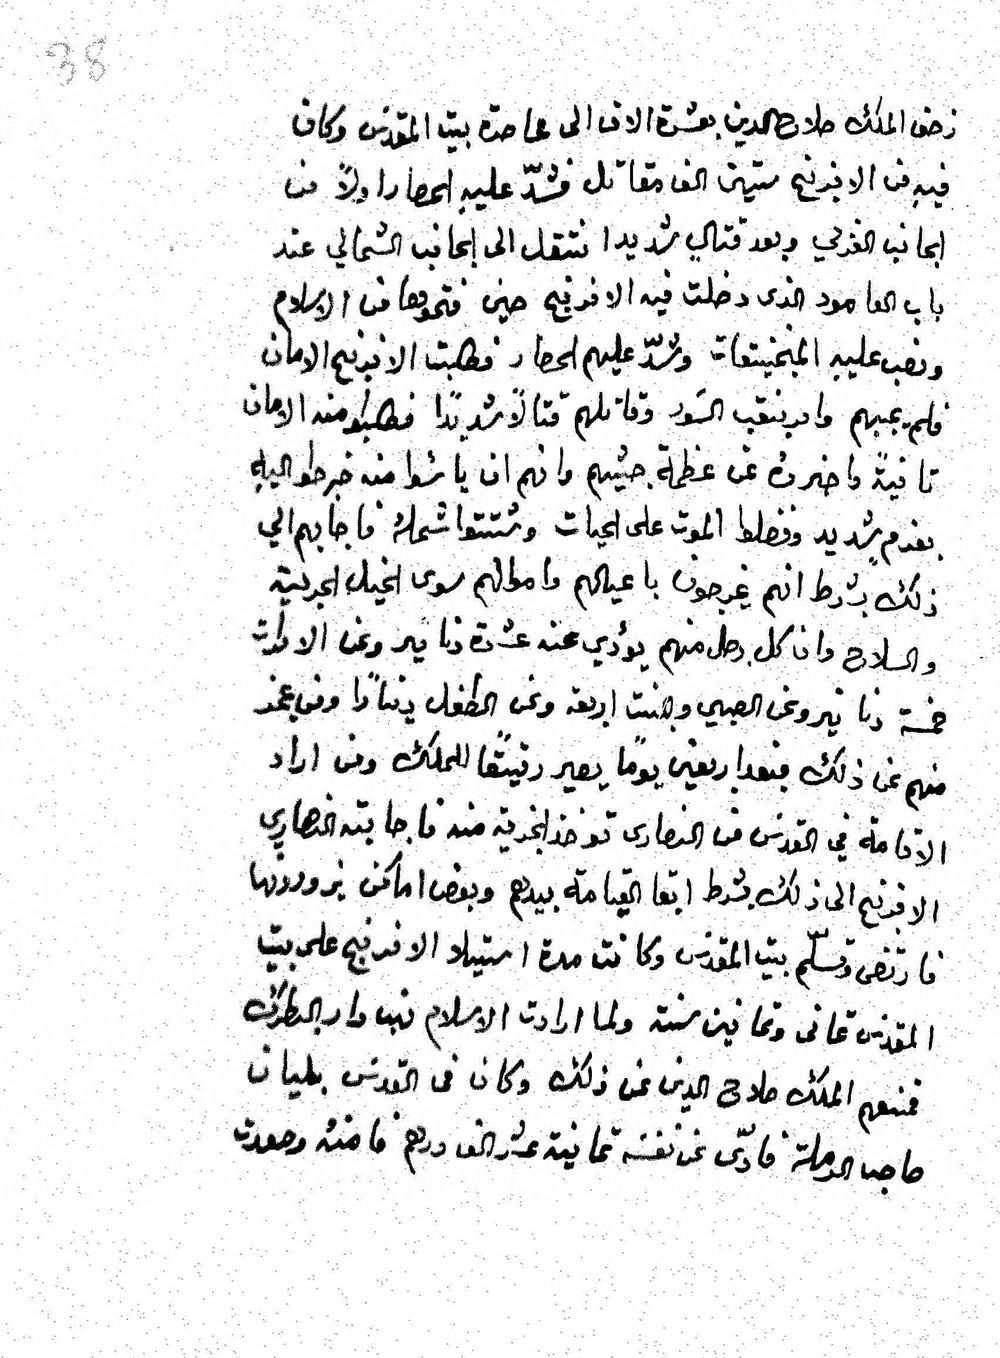 38
زحف الملك صلاح الدين بعشرة الاف الى محاصرة بيت المقدس وكان
فيه من الافرنج ستين الف مقاتل فشدّ عليه الحصار اولاً من
الجانب الغربي وبعد قتالٍ شديد انتقل الى الجانب الشمالي عند
باب العامود الذى دخلت فيه الافرنج حين فتحوها من الاسلام
ونصب عليه المنجنيقات وشدّ عليهم الحصار فطلبت الافرنج الامان
فلم يجبهم وامر بنقب السور وقاتلهم قتالاً شديدًا فطلبوا منه الامان
ثانيةً واخبروه عن عظمة جيشهم وانهم ان يائسوا منه خرجوا اليه
بعزمٍ شديد وفضلوا الموت على الحيات وشتتوا شمله فاجابهم الي
ذلك بشرط انهم يخرجون باعيالهم واموالهم سوى الخيل الحربية
والسلاح وان كل رجل منهم يؤدي عنه عشرة دنانير وعن الامرات
خمسة دنانير وعن الصبي والبنت اربعه وعن الطفل دينارًا ومن عجز
منهم عن ذلك فبعد اربعين يومًا يصير رقيقًا للملك ومن اراد
الاقامة في القدس من النصارى توخذ الجزية منه فاجابته النصاري
الافرنج الى ذلك بشرط ابقا القيامة بيدهم وبعض اماكن يزورونها
فارتضى وتسلّم بيت المقدس وكانت مدة استيلا الافرنج على بيت
المقدس ثمانى وثمانين سنة ولما ارادت الاسلام نهب دار البطرك
فمنعهم الملك صلاح الدين عن ذلك وكان في القدس بليان
صاحب الرملة فادّى عن نفسه ثمانية عشر الف درهم فامنه وصعدت